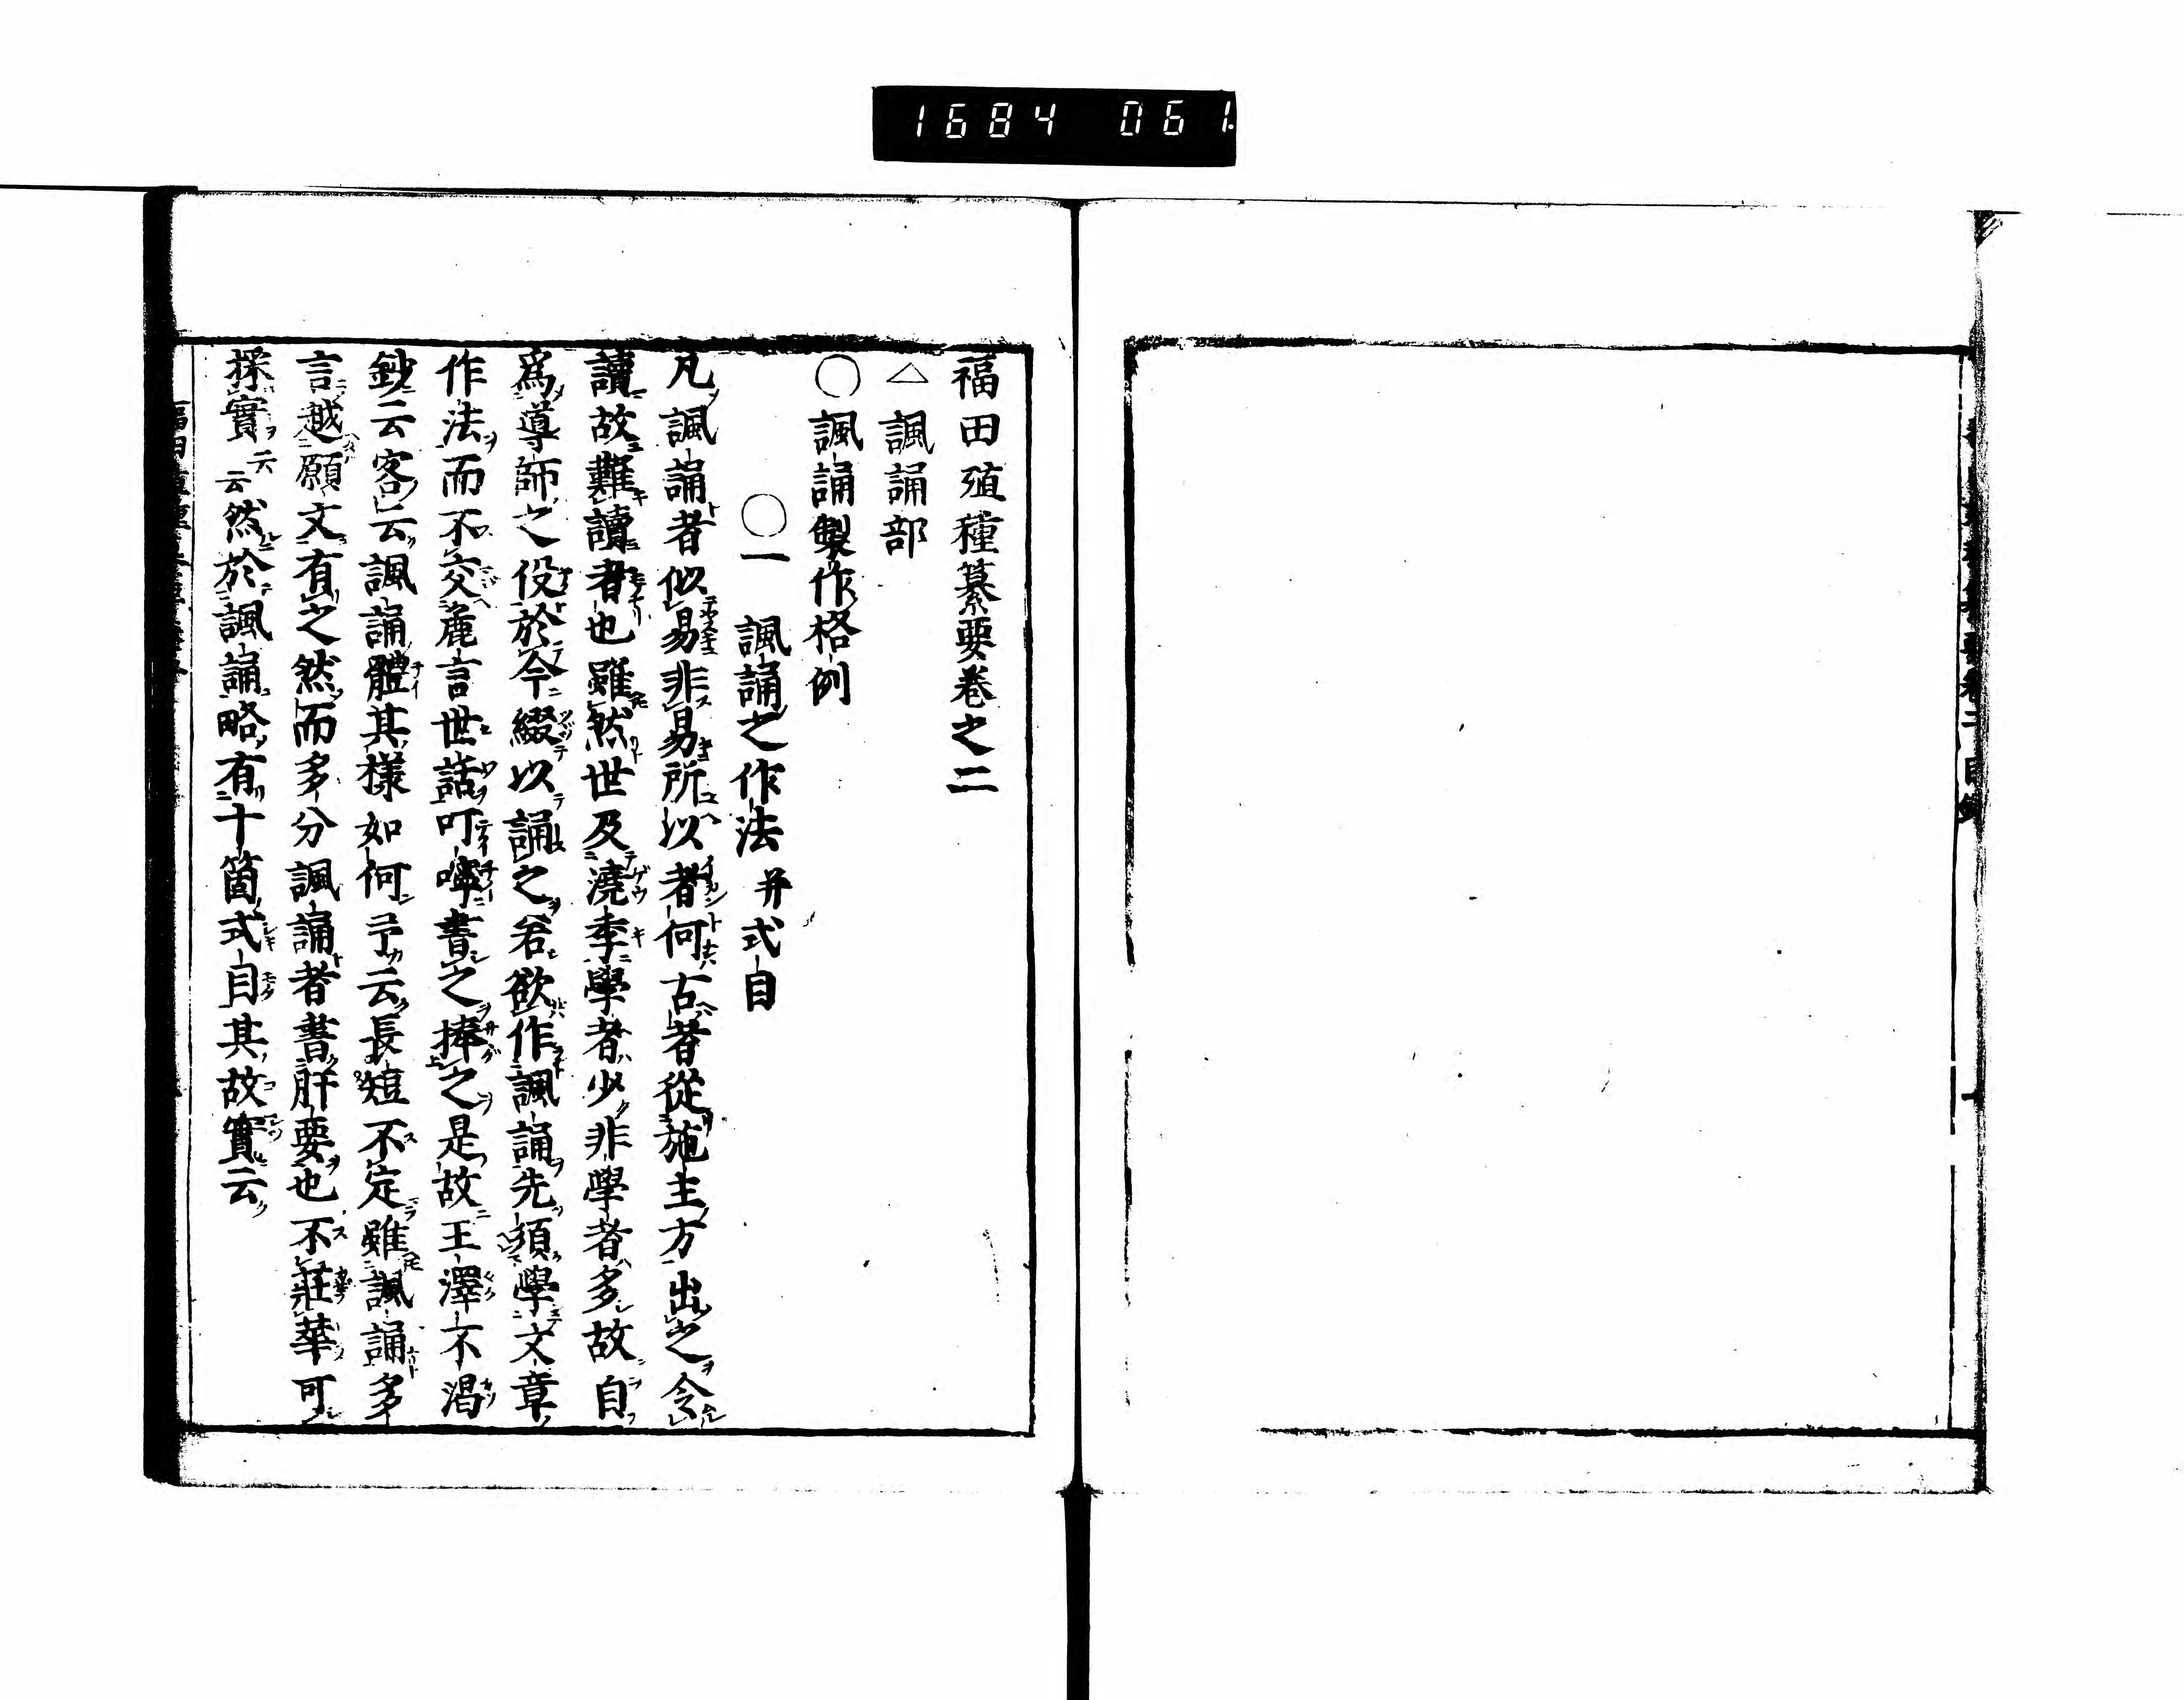 1684 061
福田殖種纂要卷之二
△諷誦部
○諷誦製作格例
○一 諷誦之作法 并式目
凡諷誦者似易非易所以者何古者從施主方出之令
讀故難讀者也雖然世及澆季學者少非學者多故自
爲導師之役於今綴以誦之若欲作諷誦先須學文章
作法而不交麁言世話叮嚀書之捧之是故王澤不渇
鈔云客云諷誦體其樣如何予云長短不定雖諷誦多
言越願文有之然而多分諷誦者書肝要也不莊華可
採實云云然於諷誦略有十箇式目其故實云